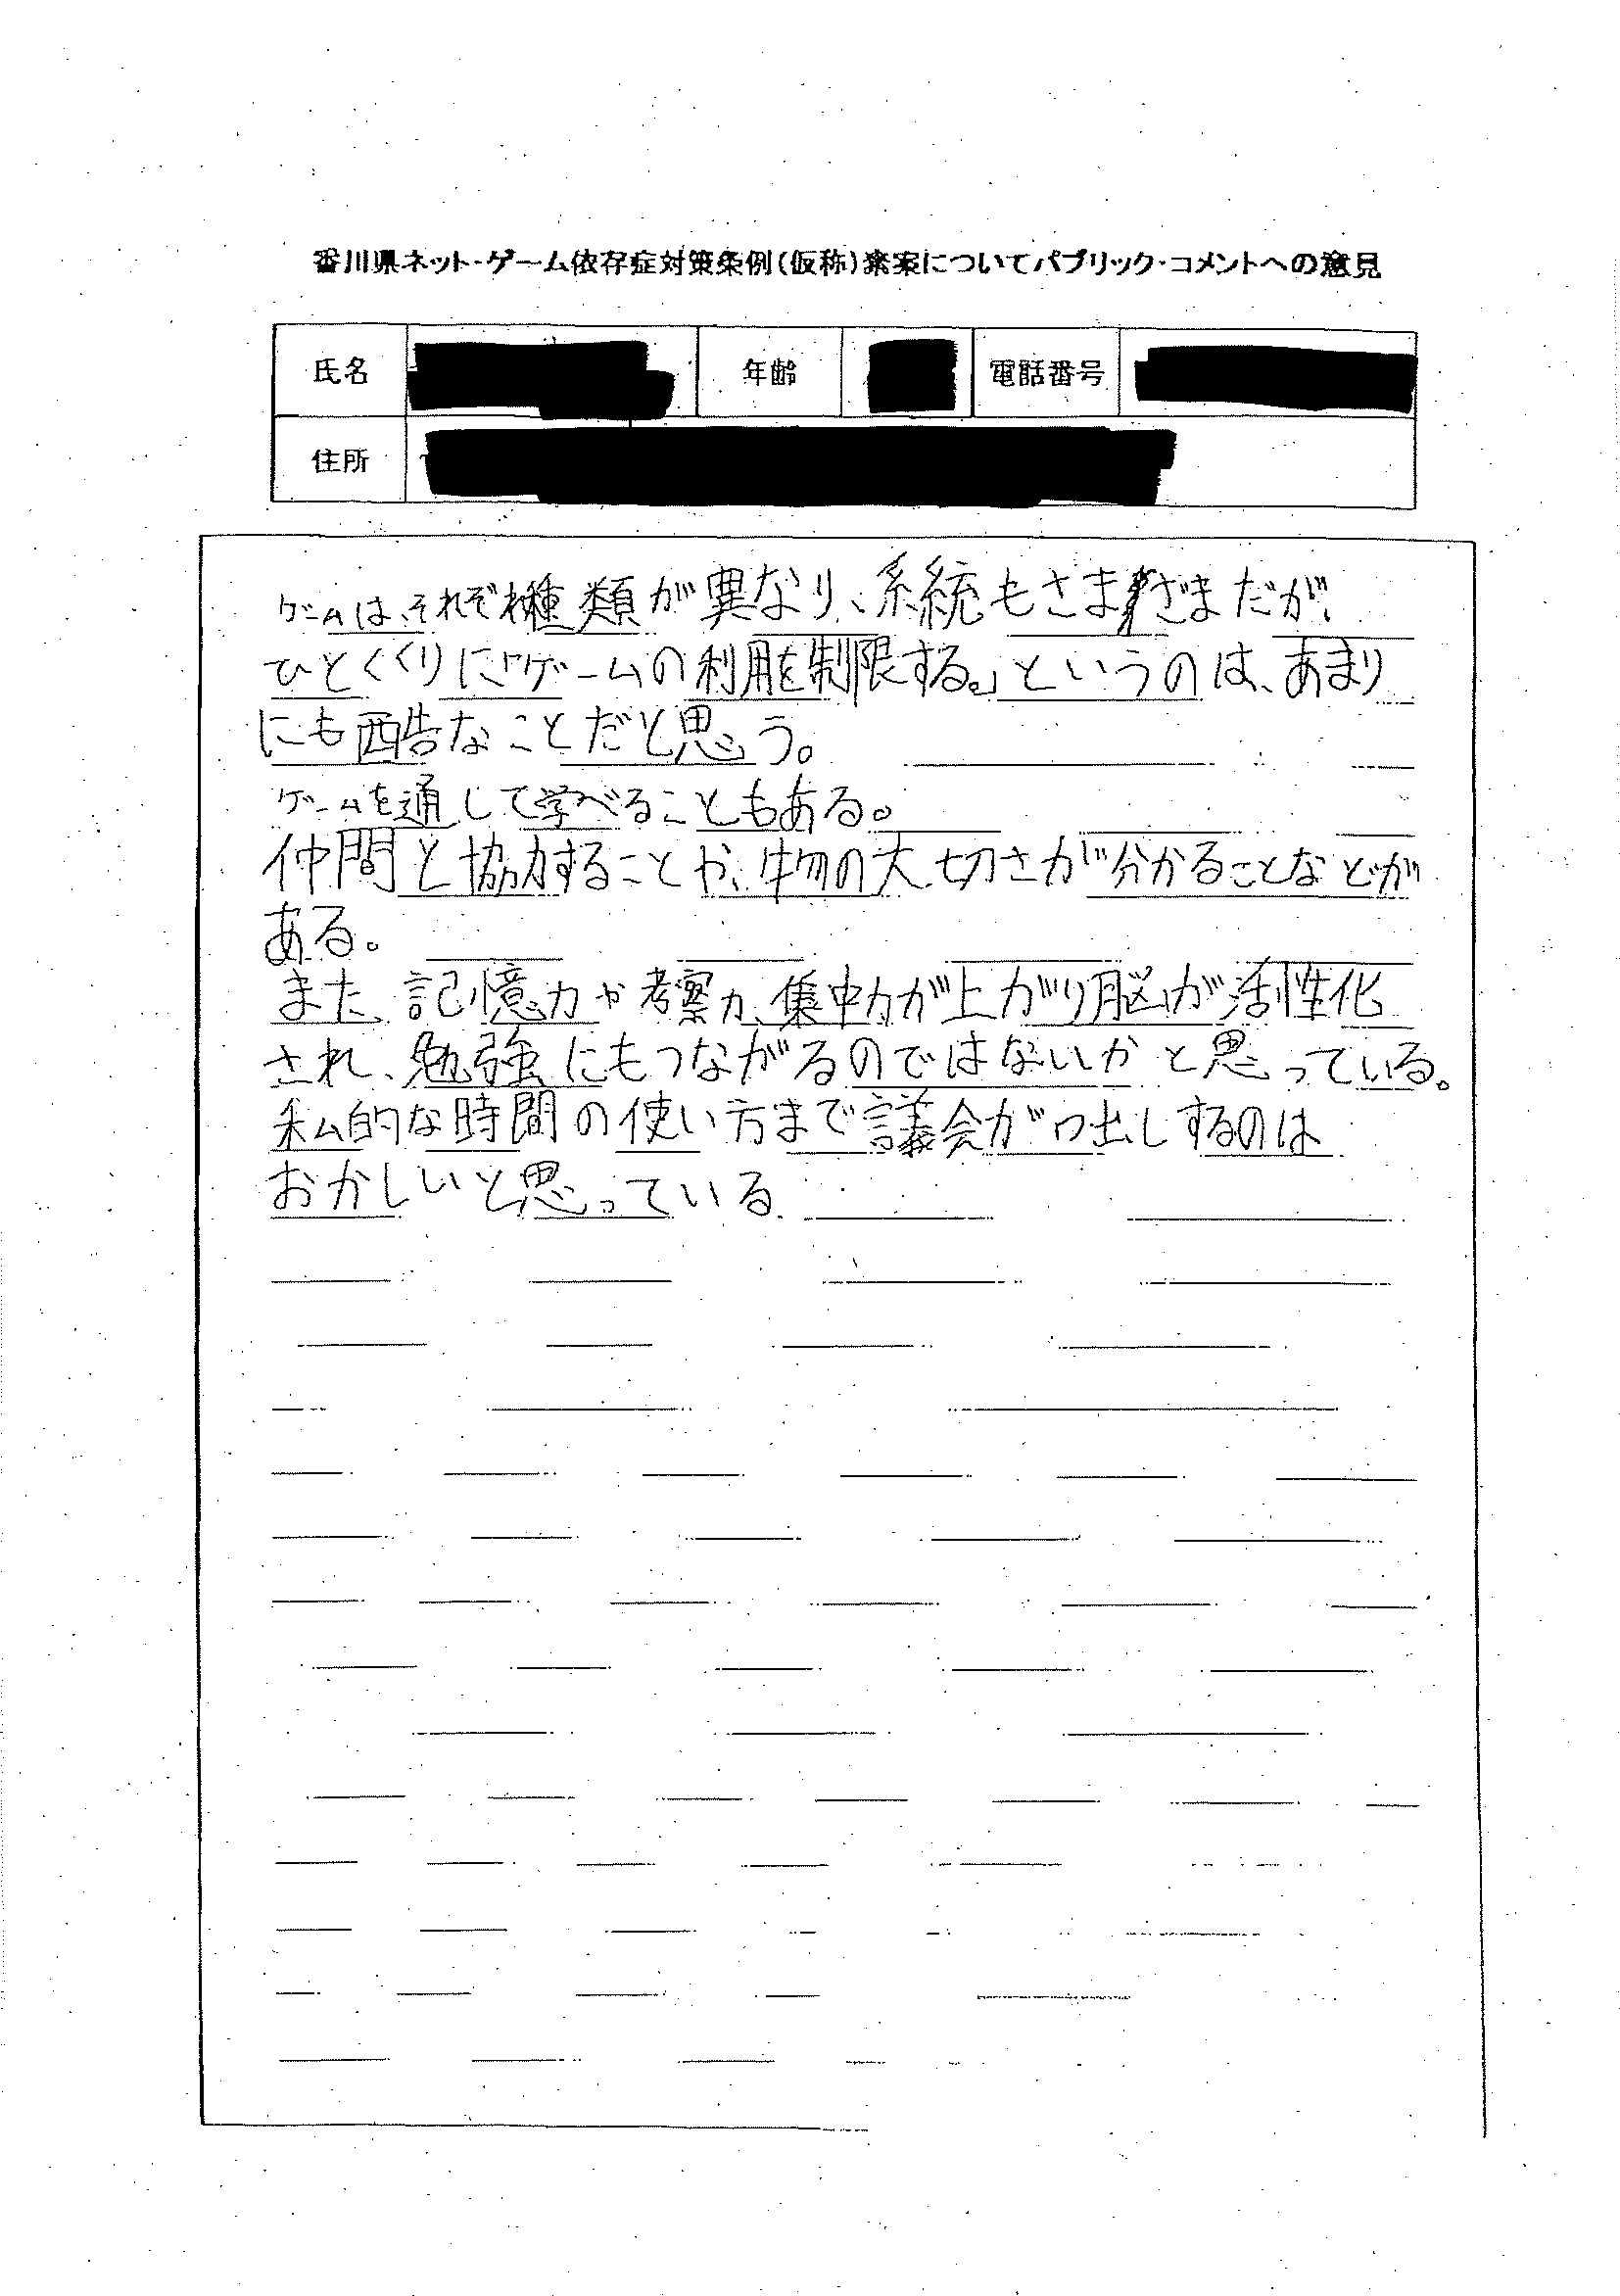 香川県ネット・ゲーム依存症対策条例(仮称)素案についてパブリック・コメントへの意見
氏名 年齢 電話番号
住所
ゲームは、それぞれ種類が異なり、系統もさまざまだが、
ひとくくりに「ゲームの利用を制限する。」というのは、あまり
にも酷なことだと思う。
ゲームを通して学べることもある。
仲間と協力することや、物の大切さが分かることなどが
ある。
また、記憶力や考察力、集中力が上がり脳が活性化
され、勉強にもつながるのではないかと思っている。
私的な時間の使い方まで議会が口出しするのは
おかしいと思っている.